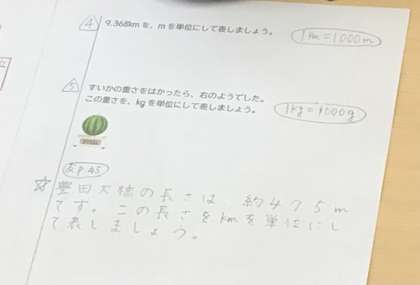 ④ 9.368kmを、mを単位にして表しましょう。 1km=1000m
⑤ すいかの重さをはかったら、右のようでした。
この重さを、kgを単位にして表しましょう。 1kg=1000g
あP.45
☆豊田大橋の長さは、約475m
です。この長さをkmを単位にし
て表しましょう。